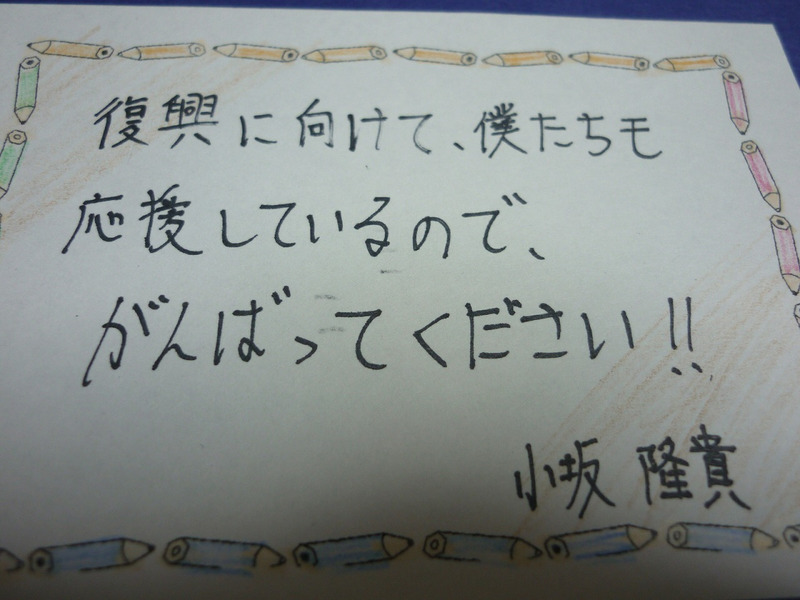 復興に向けて、僕たちも
応援しているので、
がんばってください!!
小坂 隆貴